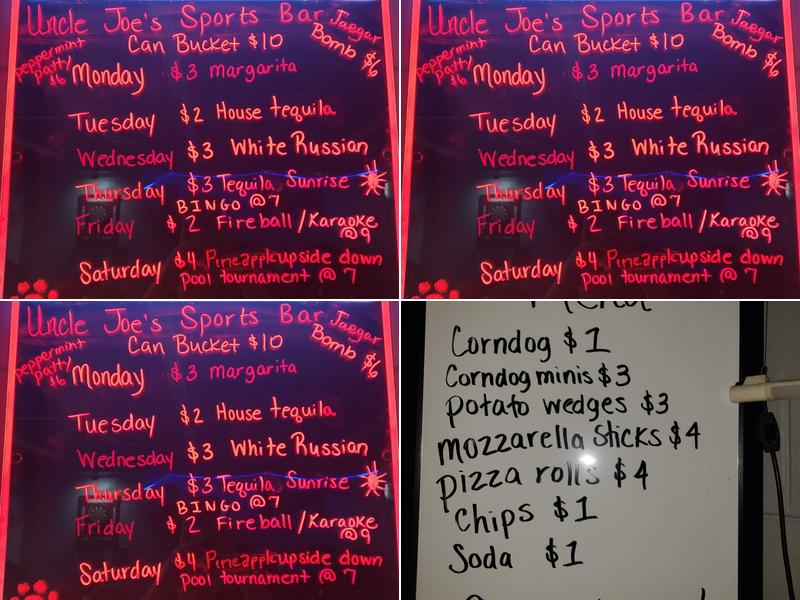 Uncle Joe's Sports Bar
Can Bucket $10
Jaegar
Bomb $6
peppermint
patty
$6
Monday $3 margarita
Tuesday $2 House tequila
Wednesday $3 White Russian
Thursday $3 Tequila Sunrise
BINGO @7
Friday $2 Fireball/Karaoke
@9
Saturday $4 Pineapple upside down
pool tournament @ 7
Uncle Joe's Sports Bar
Can Bucket $10
Jaegar
Bomb $6
peppermint
patty
$6
Monday $3 margarita
Tuesday $2 House tequila
Wednesday $3 White Russian
Thursday $3 Tequila Sunrise
BINGO @7
Friday $2 Fireball/Karaoke
@9
Saturday $4 Pineapple upside down
pool tournament @ 7
Uncle Joe's Sports Bar
Can Bucket $10
Jaegar
Bomb $6
peppermint
patty
$6
Monday $3 margarita
Tuesday $2 House tequila
Wednesday $3 White Russian
Thursday $3 Tequila Sunrise
BINGO @7
Friday $2 Fireball/Karaoke
@9
Saturday $4 Pineapple upside down
pool tournament @ 7
Corndog $1
Corndog minis $3
potato wedges $3
mozzarella sticks $4
pizza rolls $4
Chips $1
Soda $1